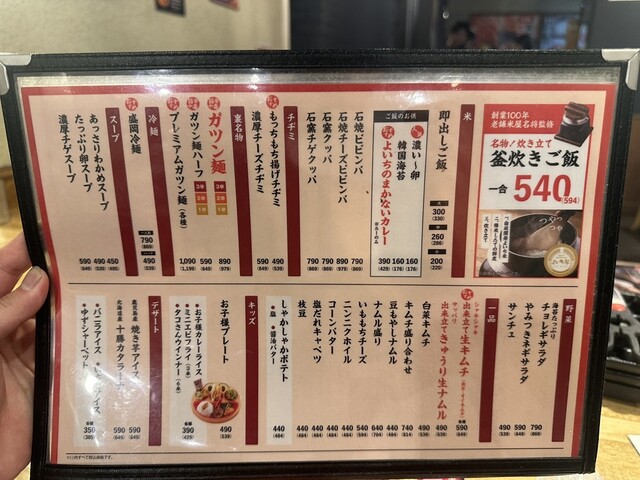 創業100年
老舗米屋名将監修
名物!炊き立て
釜炊きご飯
一合 540 (594)
米
即出しご飯
大 300 (330)
中 260 (286)
小 200 (220)
ご飯のお供
濃い〜卵 160 (176)
韓国海苔 160 (176)
よいちのまかないカレー 390 (429)
石焼ビビンバ 790 (869)
石焼チーズビビンバ 890 (979)
石窯クッパ 790 (869)
石窯チゲクッパ 790 (869)
チヂミ
もっちもち揚げチヂミ 490 (539)
濃厚チーズチヂミ 590 (649)
裏名物
ガツン麺 890 (979)
ガツン麺ハーフ 590 (649)
プレミアムガツン麺(各種) 1,090 (1,199)
3辛
2辛
1辛
冷麺
盛岡冷麺
790 (869)
ハーフ 490 (539)
スープ
あっさりわかめスープ 450 (495)
たっぷり卵スープ 490 (539)
濃厚チゲスープ 590 (649)
野菜
海苔たっぷり
チョレギサラダ 790 (869)
やみつきネギサラダ 590 (649)
サンチェ 490 (539)
一品
シャキシャキ
出来立て生キムチ
サッパリ
出来立てきゅうり生ナムル
各種 590 (649)
白菜キムチ 490 (539)
キムチ盛り合わせ 740 (814)
豆もやしナムル 440 (484)
ナムル盛り 640 (704)
いももちチーズ 540 (594)
ニンニクホイル 440 (484)
コーンバター 440 (484)
塩だれキャベツ 440 (484)
枝豆 440 (484)
しゃかしゃかポテト 440 (484)
●塩 ●醤油バター
キッズ
お子様プレート 490 (539)
●お子様カレーライス
●ミニエビフライ(3本)
●タコさんウィンナー(6本)
各種 390 (429)
デザート
鹿児島産 焼き芋アイス 590 (649)
北海道産 十勝カタラーナ 590 (649)
●バニラアイス
●ゆずシャーベット
各種 350 (385)